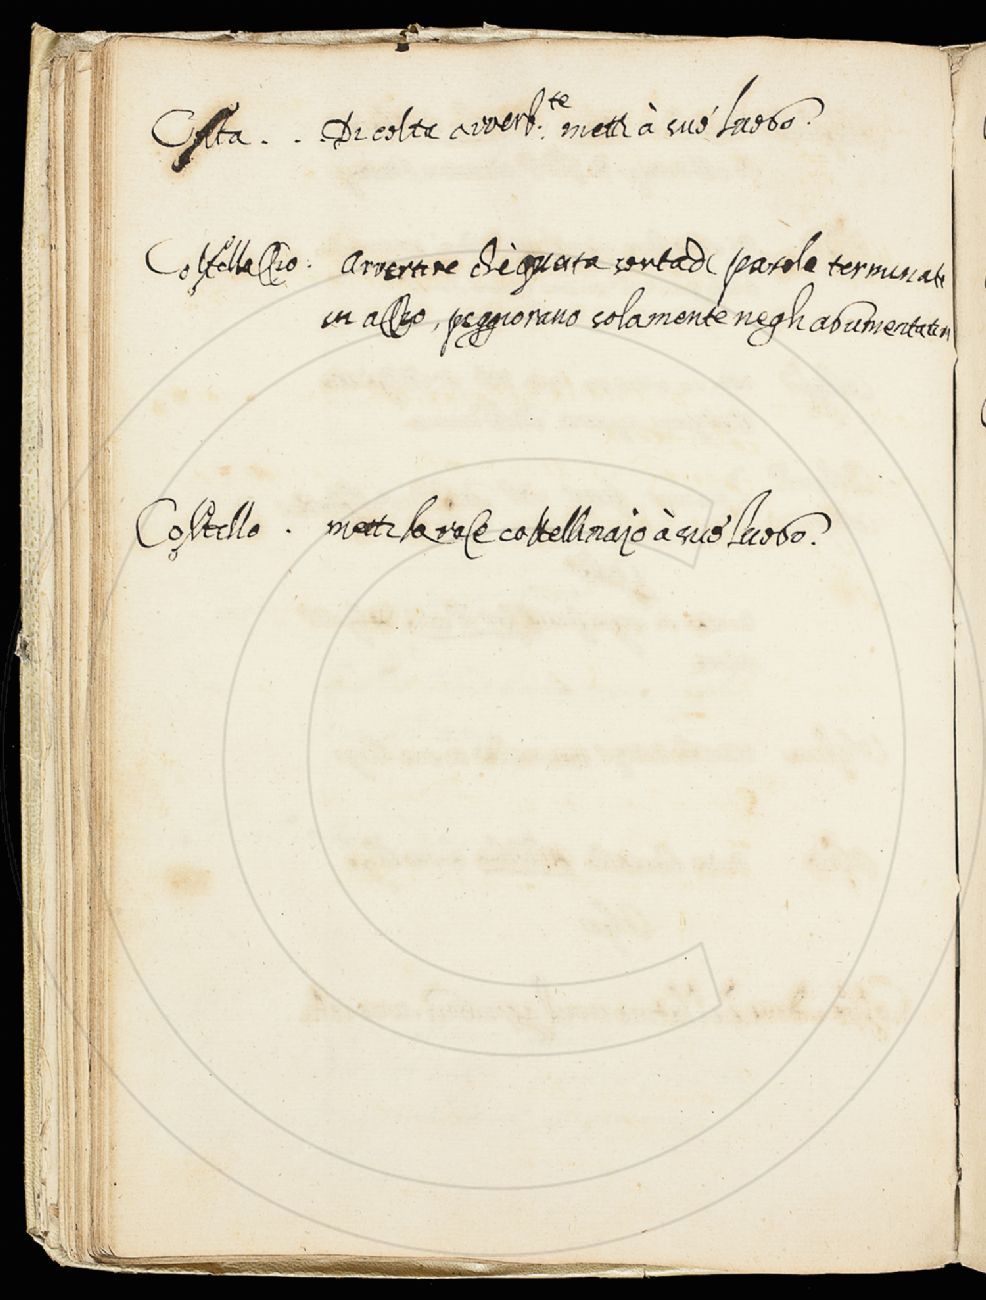 Colta . . Di colta avverb:te metti à suo luogo.
Coltellaccio. Avvertire che questa sorta di parole terminate
in accio, peggiorano solamente negli
Coltello . metti la voce coltellinajo à suo luogo.